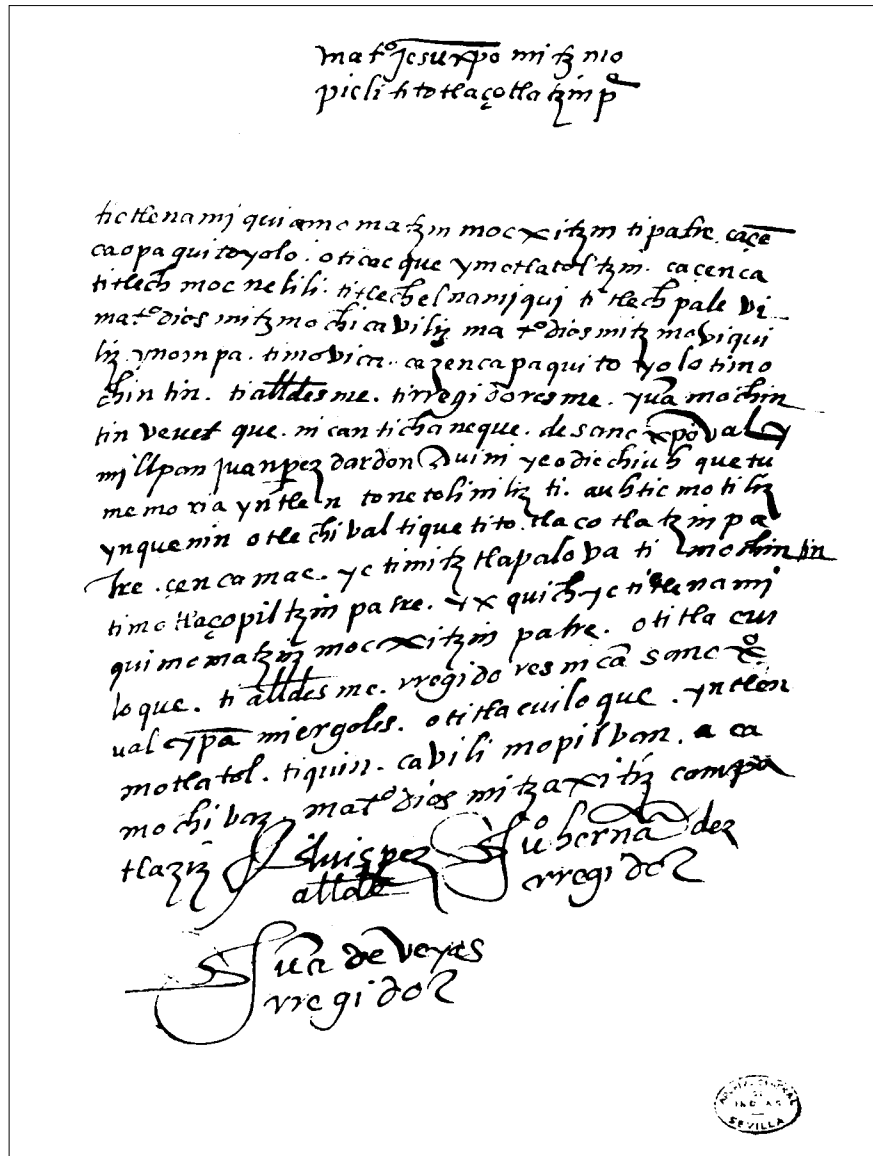 mat⁰ jesuxpo mitz mo
pieli ti totlaçotlatzin p
tictlenamiquia momatzin mocxitzin tipatre. caçē
ca opaqui toyolo. oticac que ymotlatoltzin. ca çenca
titlech moc nelili. titlechelnamiqui titlech pale vi
mat⁰ dios mitzmochicaviliz ma t⁰ dios mitz maviqui
liz ymompa. timovica. cazenca paquito yolo timo
chin tin. ti alldes me. tirregidores me. yuā mochin
tin vevet que. nican tichaneque. de sanc xpoval y
millpan juan perez dardon quimi yeo diechiuh que tu
memoria yntlen tonetoliniliz ti. auh tic motiliz
ynquenin otlechival tique tito. tlaco tlatzin pa
tre. çen ca mac. yc timitztlapalova ti mochin tin
timotlaçopiltzin patre. yx quich yc titlenami
qui momatzin mocxitzin patre. otitla cui
lo que. ti alldes me. rregidores nicā sanc x⁰
ual ypā miergoles. otitlacuiloque. yntlen
motlatol. tiquin. cavili mopilvan. a ca
mochivaz mat⁰ dios mitzaxitiz campa
tlaziz luis pez Ju⁰ hernādez
allde rregidor
Juā de veyes
rregidor
ARCHIVO GENERAL
DE
INDIAS
SEVILLA